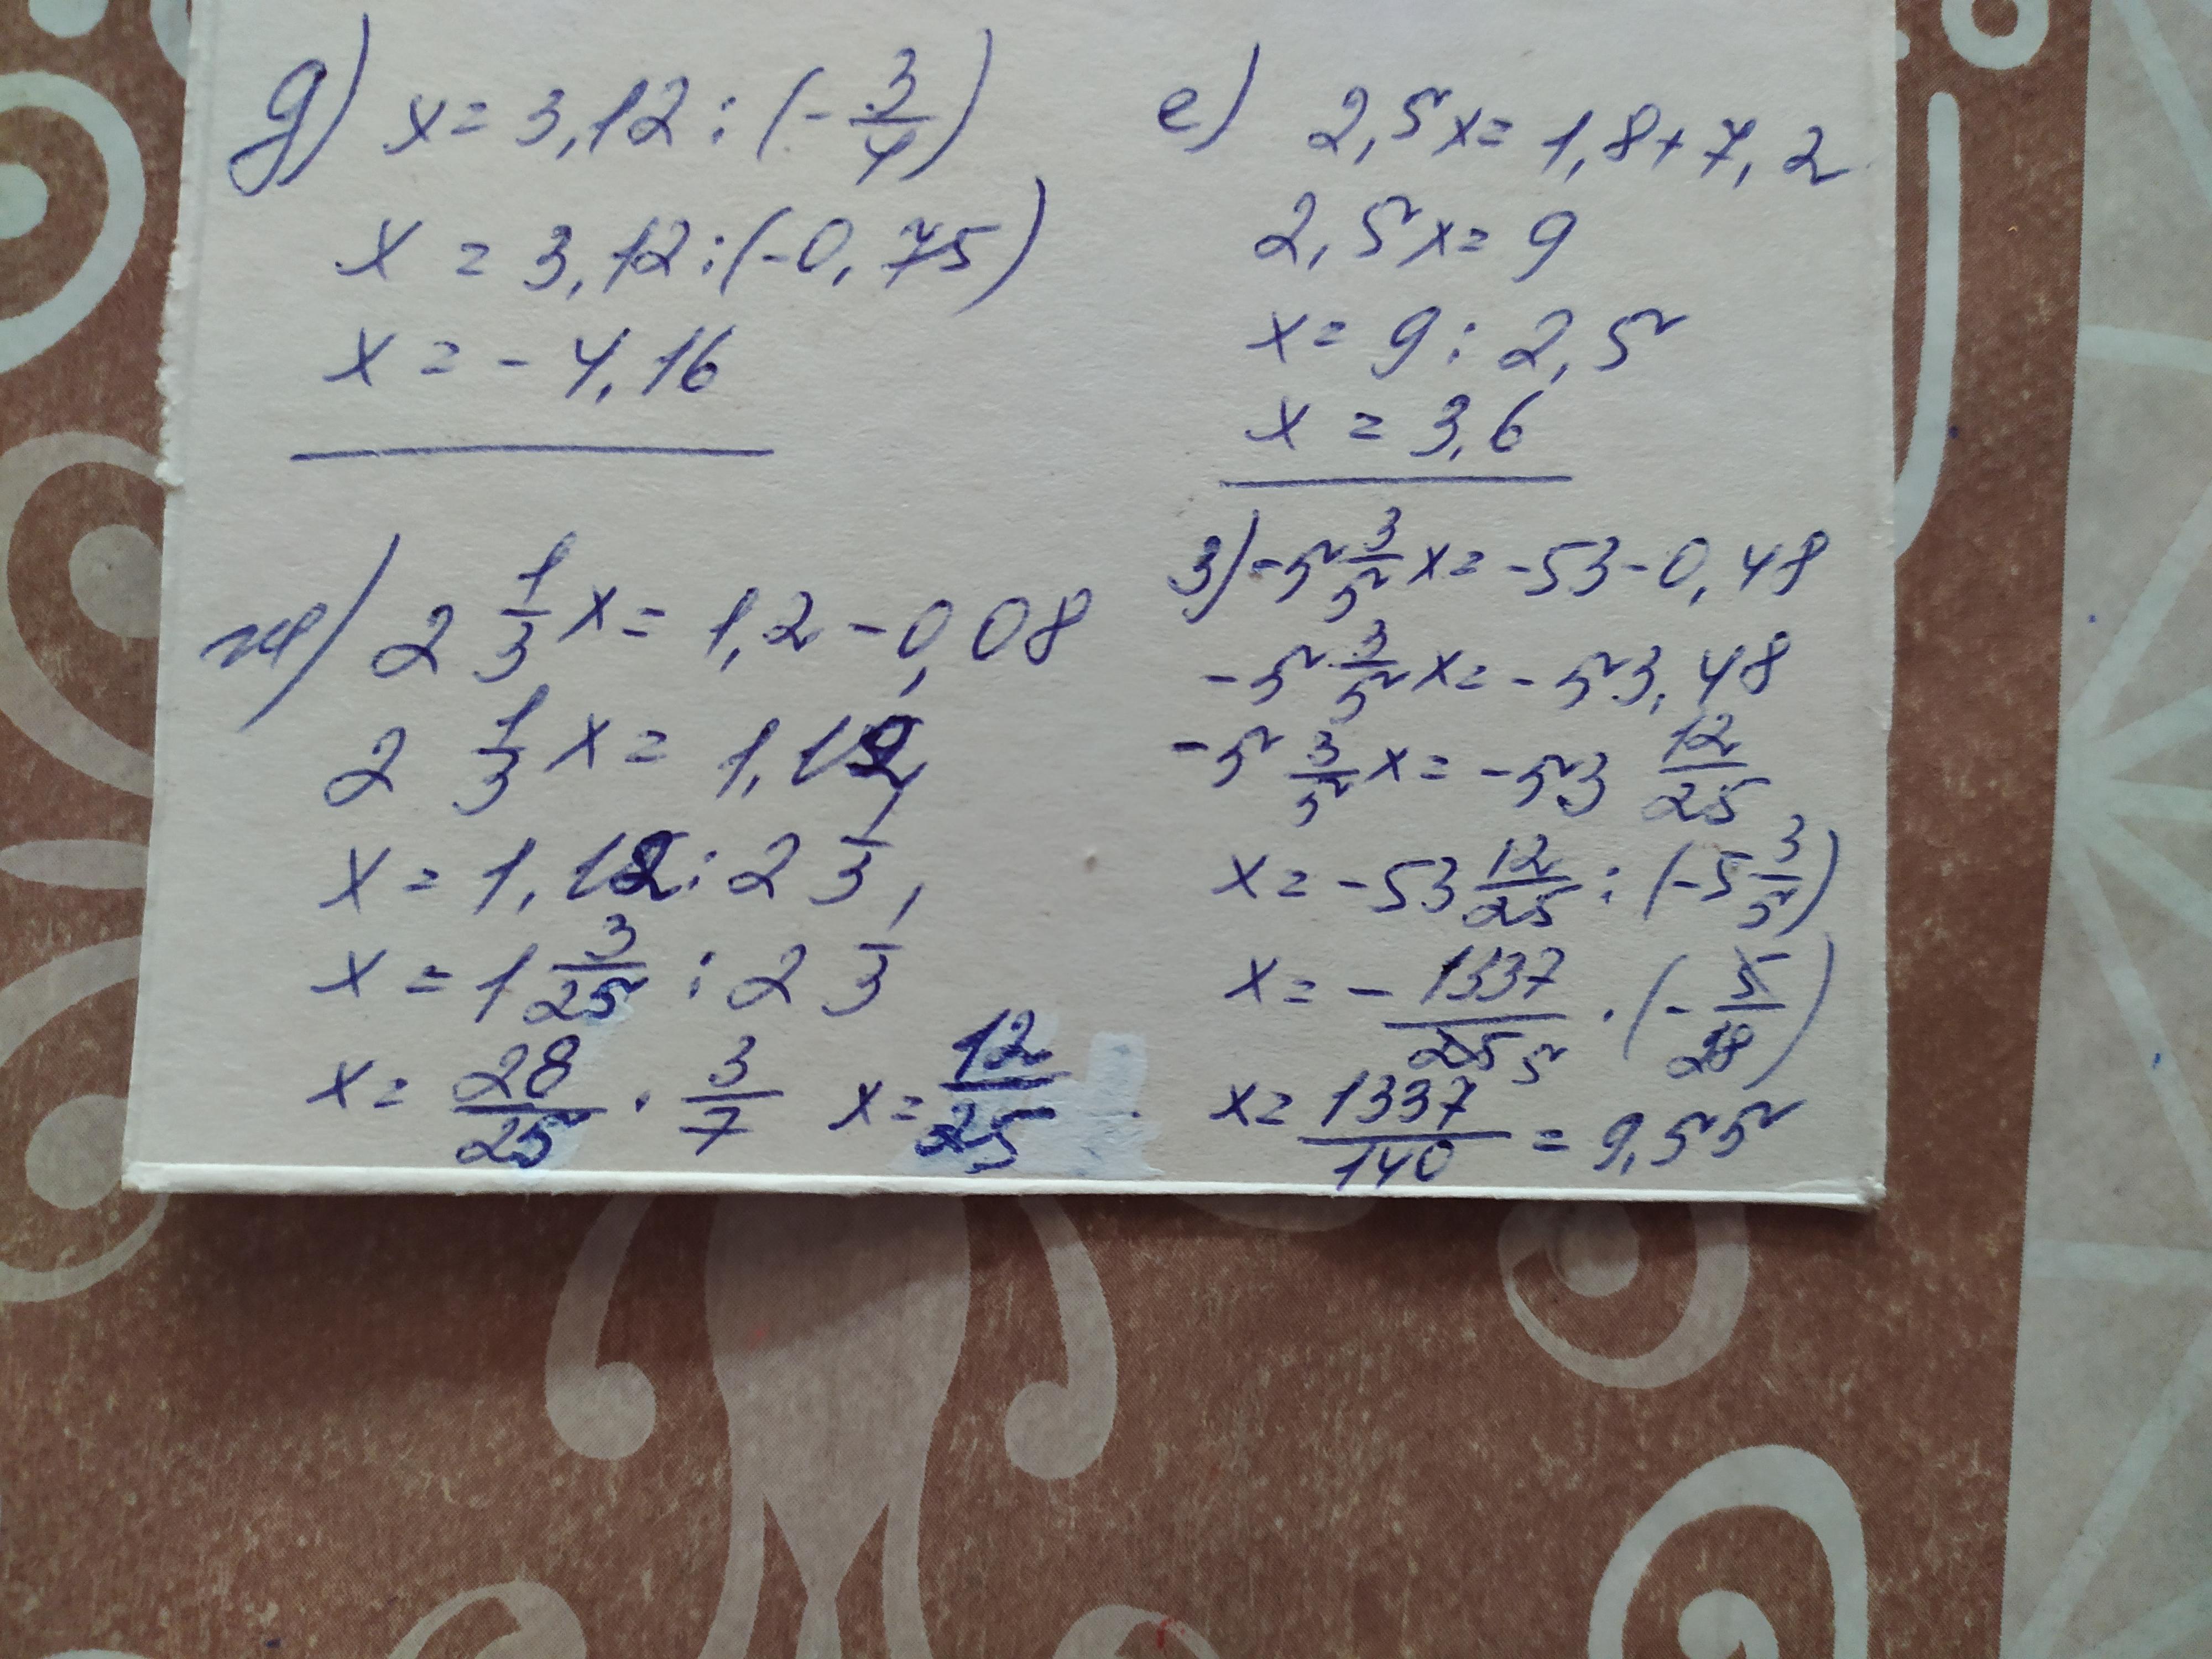 д) x = 3,12 : (-3/4)
x = 3,12 : (-0,75)
x = -4,16
е) 2,5x = 1,8 + 7,2
2,5x = 9
x = 9 : 2,5
x = 3,6
ж) 2 1/3 x = 1,2 - 0,08
2 1/3 x = 1,12
x = 1,12 : 2 1/3
x = 1 3/25 : 2 1/3
x = 28/25 · 3/7 x = 12/25
з) -5 3/5 x = -53 - 0,48
-5 3/5 x = -53,48
-5 3/5 x = -53 12/25
x = -53 12/25 : (-5 3/5)
x = -1337/25 5 · (-5/28)
x = 1337/140 = 9,55